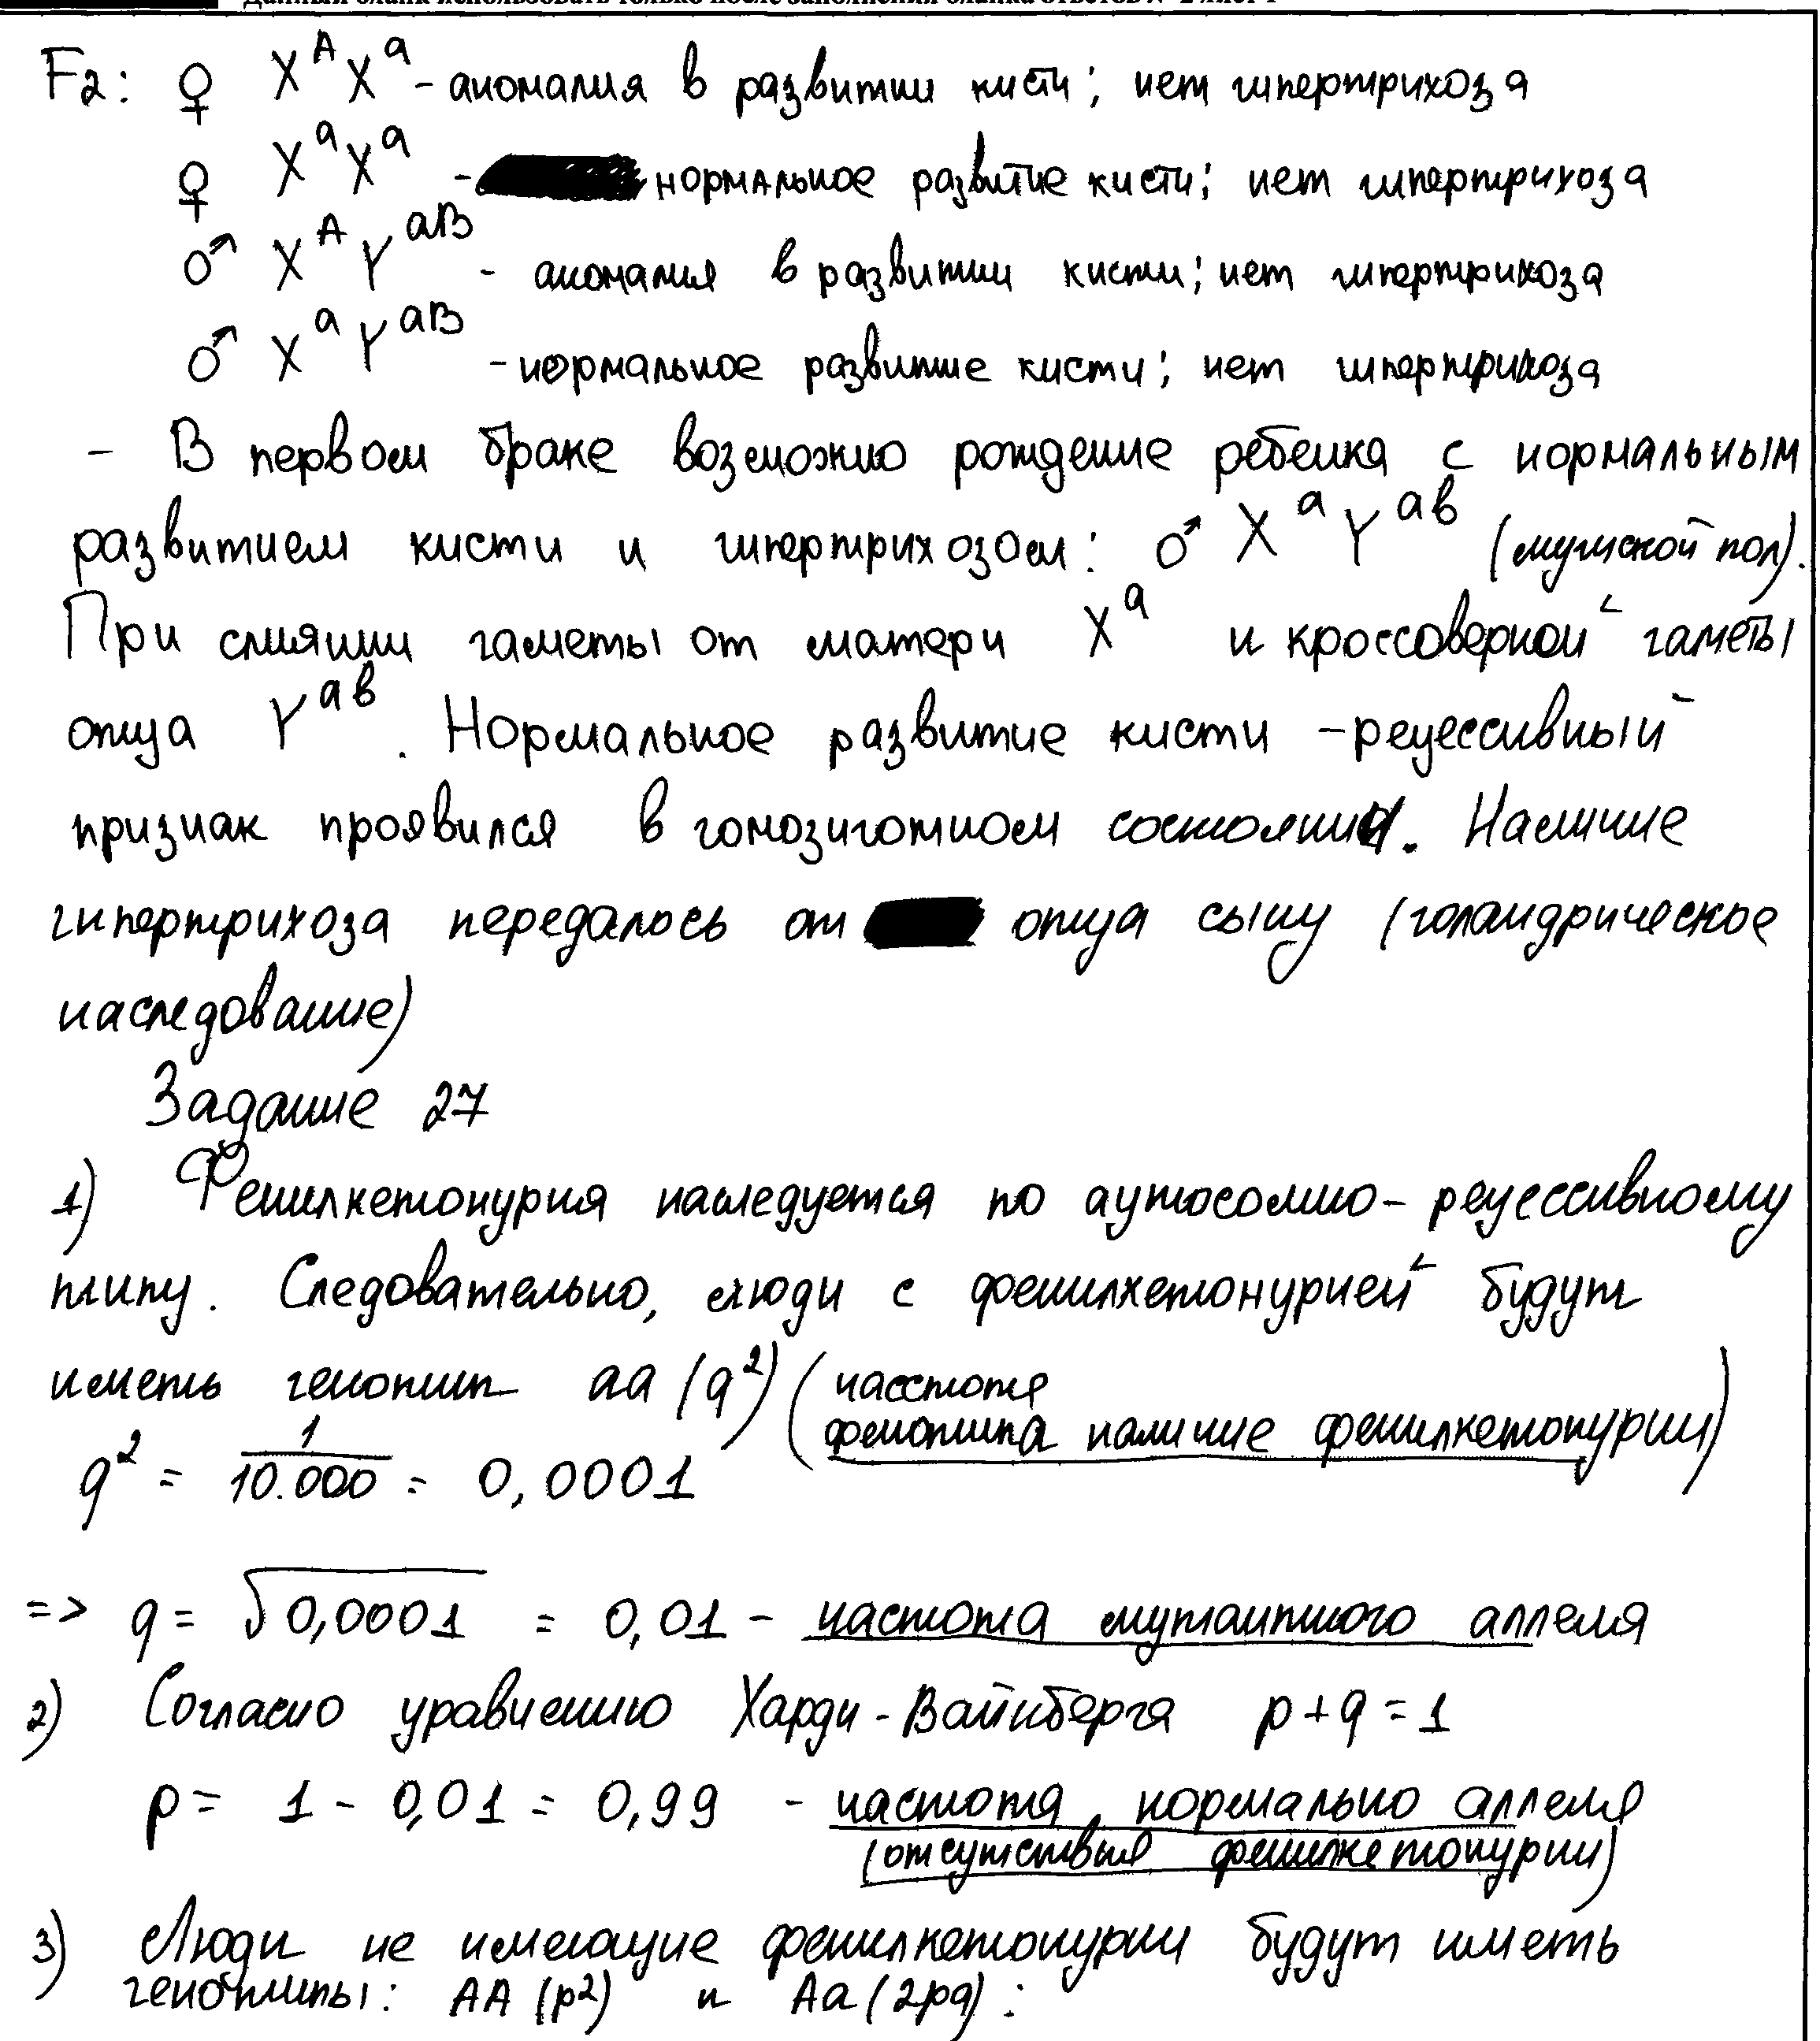 Данный бланк использовать только после заполнения бланка ответов № 2 лист 1
F2: ♀ X^A X^a - аномалия в развитии кисти; нет гипертрихоза
♀ X^a X^a - нормальное развитие кисти; нет гипертрихоза
♂ X^A Y^aB - аномалия в развитии кисти; нет гипертрихоза
♂ X^a Y^aB - нормальное развитие кисти; нет гипертрихоза
- В первом браке возможно рождение ребенка с нормальным
развитием кисти и гипертрихозом: ♂ X^a Y^ab (мужской пол).
При слиянии гаметы от матери X^a и кроссоверной гаметы
отца Y^ab. Нормальное развитие кисти - рецессивный
признак проявился в гомозиготном состоянии. Наличие
гипертрихоза передалось от отца сыну (голандрическое
наследование)
Задание 27
1) Фенилкетонурия наследуется по аутосомно-рецессивному
типу. Следовательно, люди с фенилкетонурией будут
иметь генотип aa (q²) (часстота
фенотипа наличие фенилкетонурии)
q² = 1/10.000 = 0,0001
=> q = √0,0001 = 0,01 - частота мутантного аллеля
2) Согласно уравнению Харди-Вайнберга p+q=1
p = 1 - 0,01 = 0,99 - частота нормально аллеля
(отсутствия фенилкетонурии)
3) Люди не имеющие фенилкетонурии будут иметь
генотипы: AA (p²) и Aa (2pq):